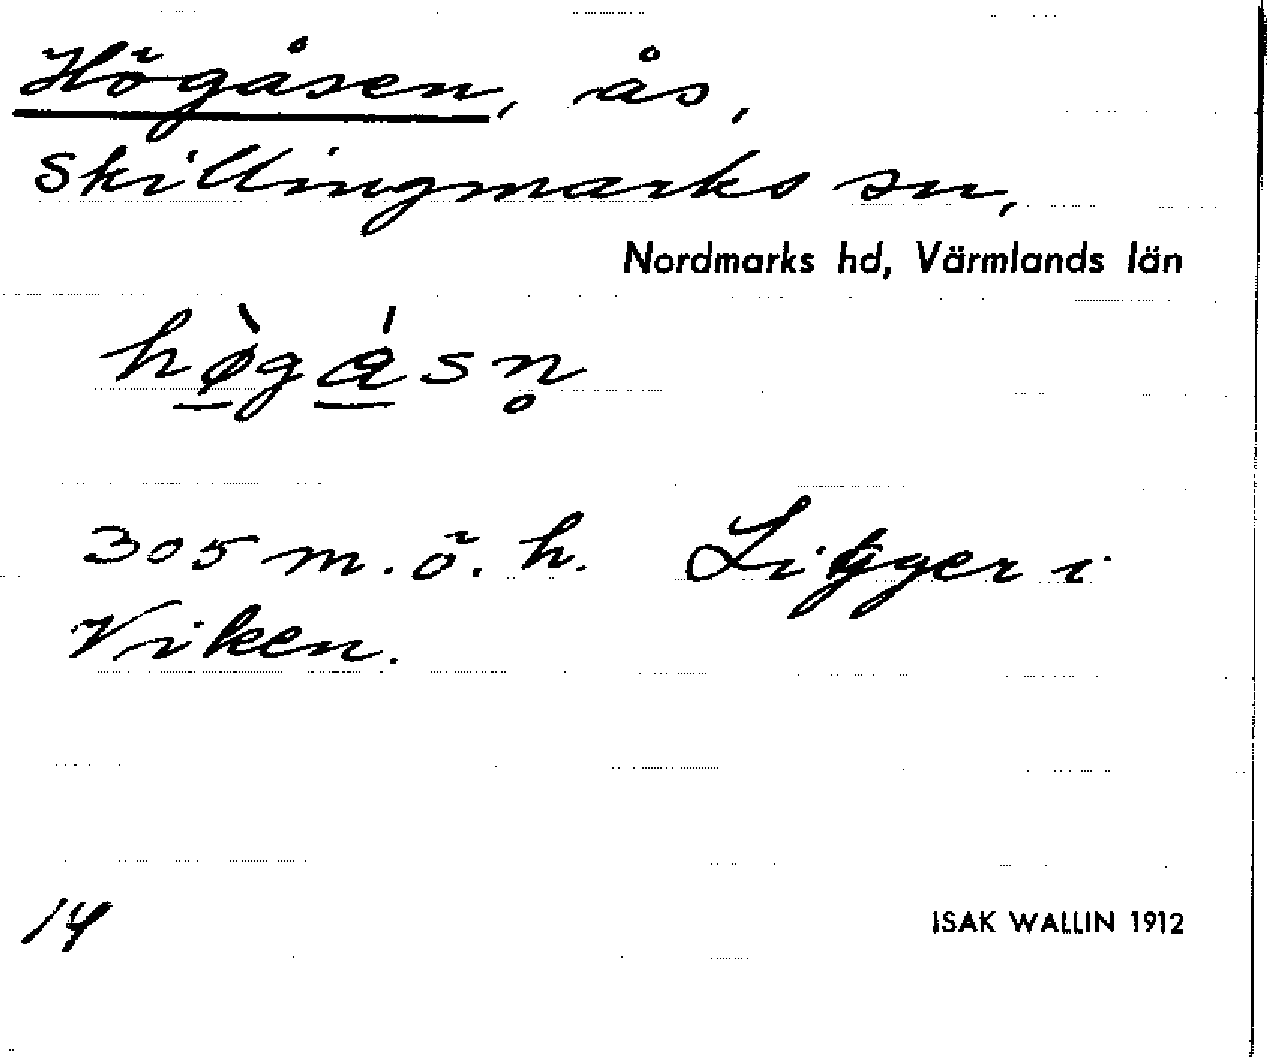 Högåsen, ås,
Skillingmarks sn,
Nordmarks hd, Värmlands län
hø̠̀gǻ̠sn̥
305 m.ö.h. Ligger i
Viken.
14
ISAK WALLIN 1912